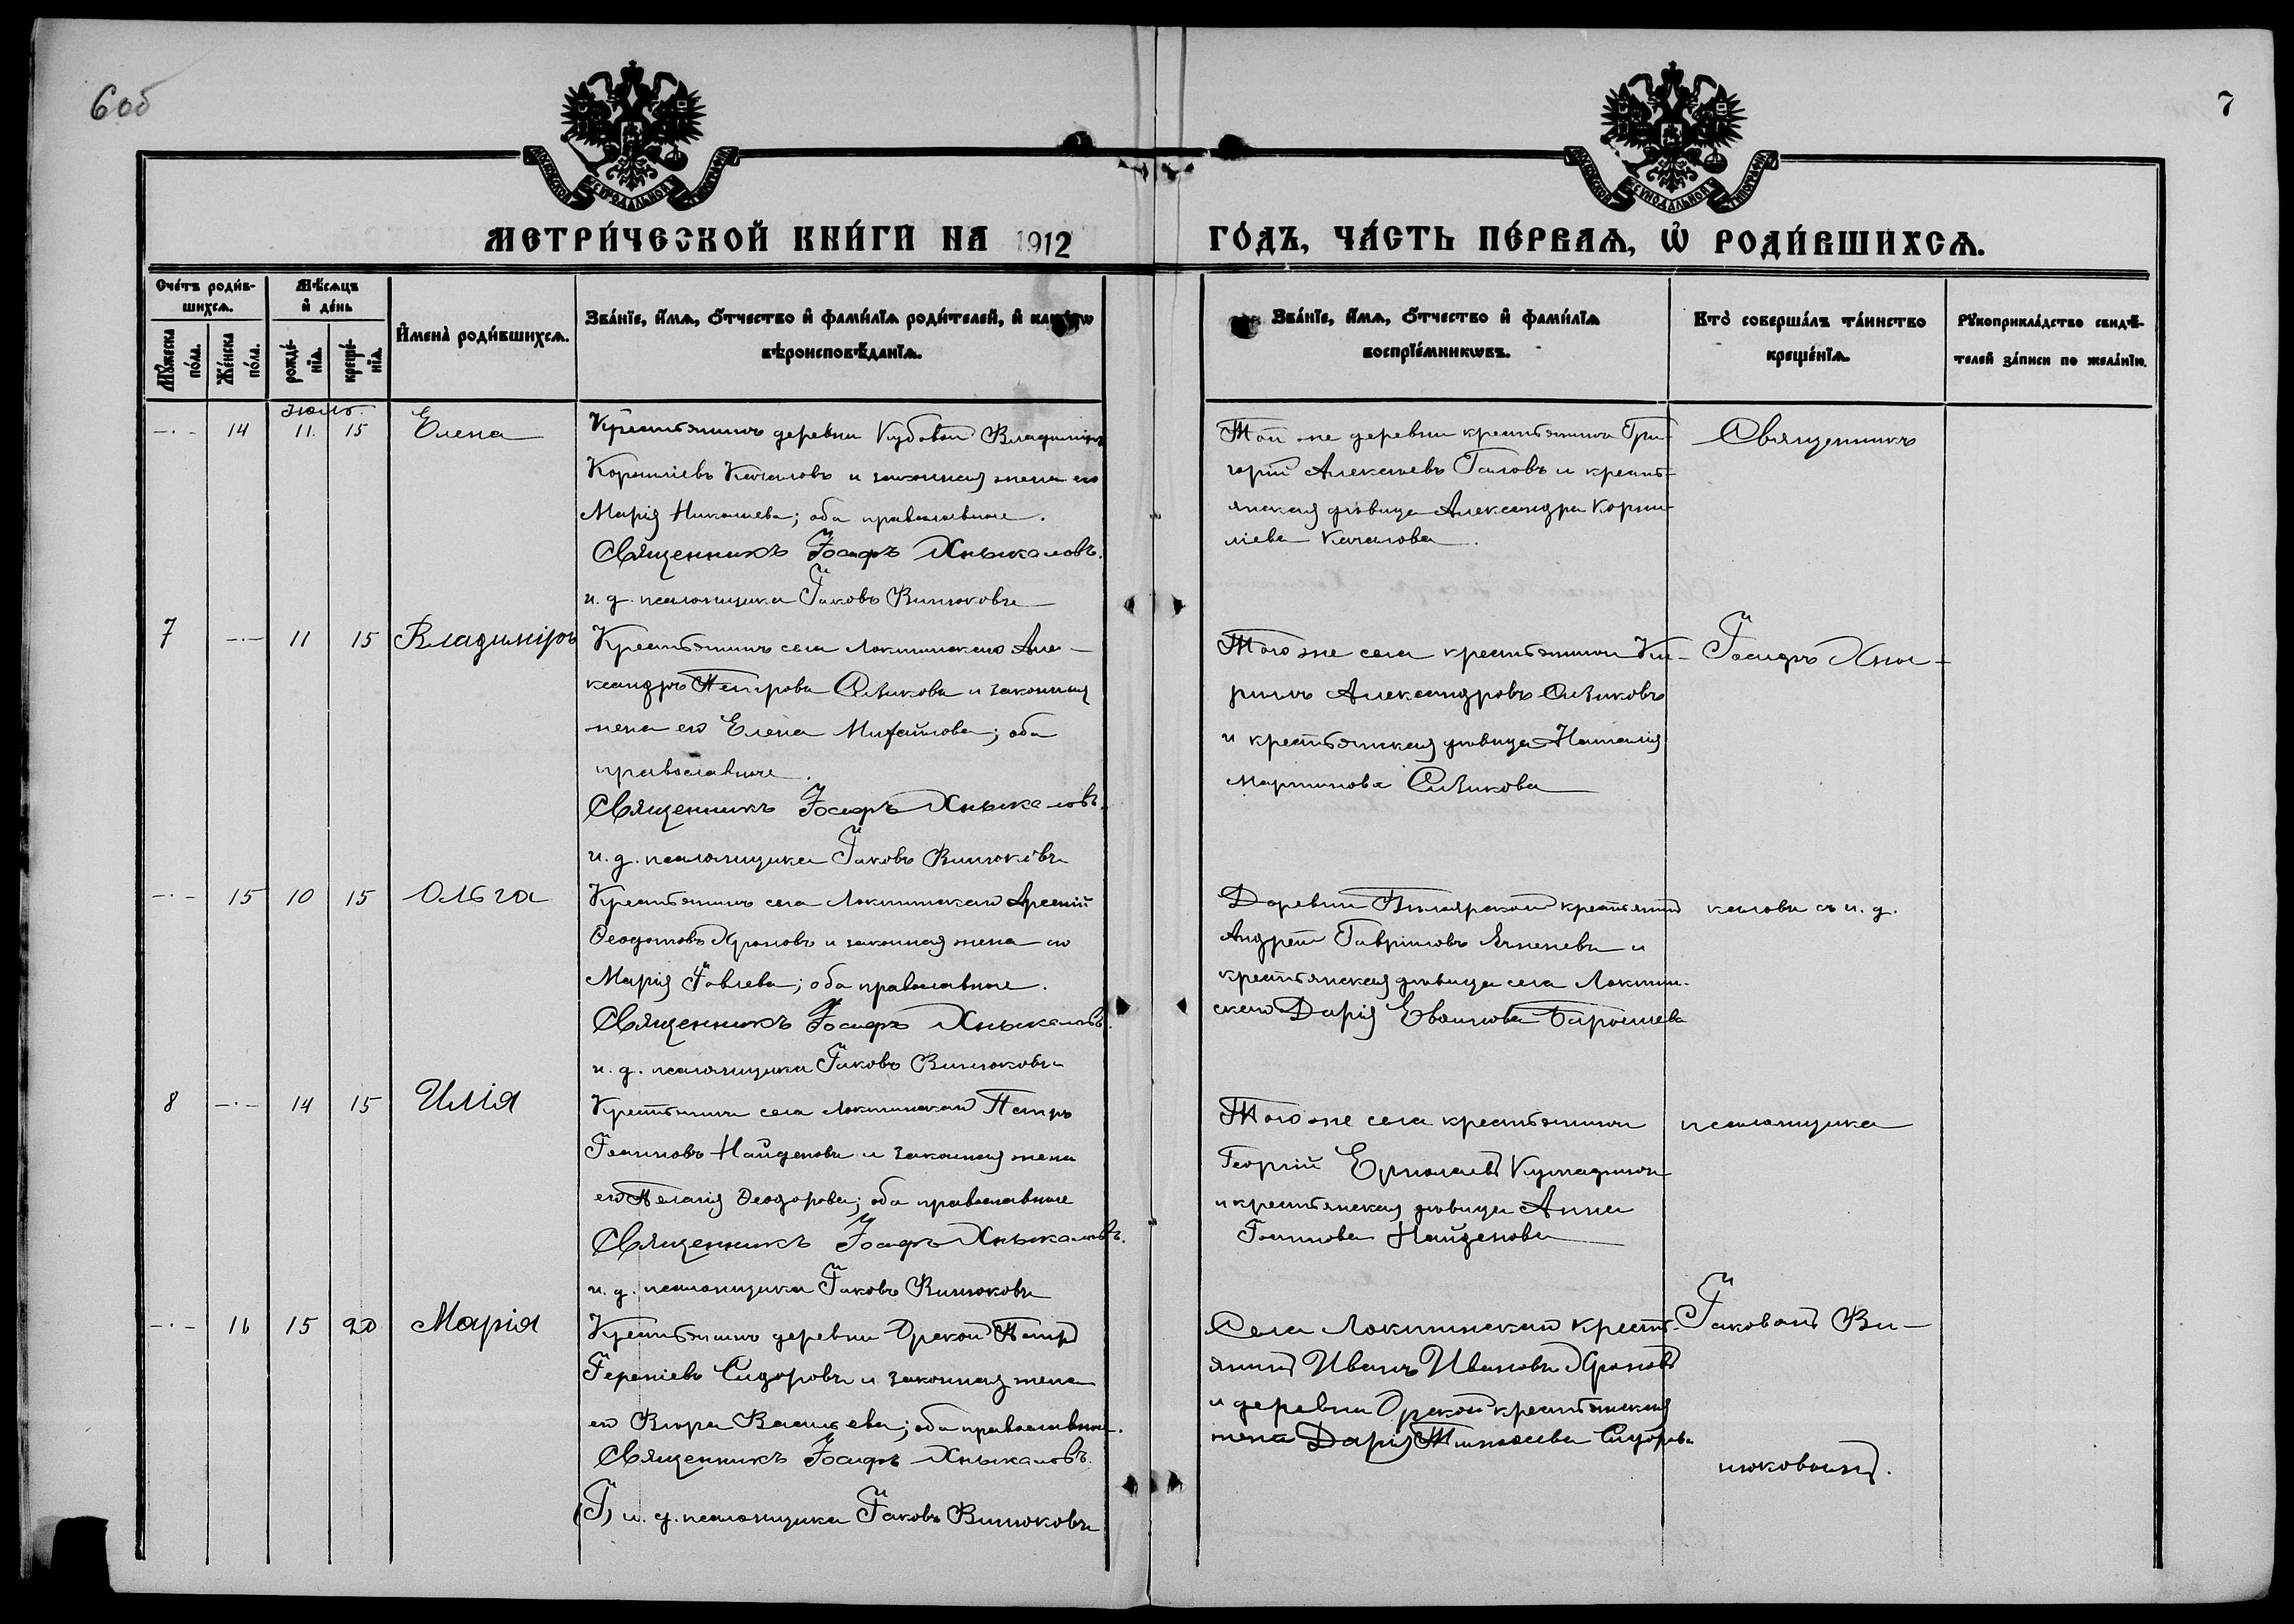 6об
7
МОСКОВСКОЙ СѴНОДАЛЬНОЙ ТИПОГРАФІИ
МОСКОВСКОЙ СѴНОДАЛЬНОЙ ТИПОГРАФІИ
МЕТРИ́ЧЕСКОЙ КНИ́ГИ НА 1912
ГО́ДЪ, ЧА́СТЬ ПЕ́РВАѦ, Ѡ҆ РОДИ́ВШИХСѦ.
Сче́тъ роди́в-
шихсѧ.
Мꙋ́жеска по́ла.
Же́нска по́ла.
Мѣ́сѧцъ
и҆ де́нь
рожде́-
нїѧ.
креще́-
нїѧ.
И҆мена̀ роди́вшихсѧ.
Зва́нїе, и҆́мѧ, ѻ҆́тчество и҆ фами́лїѧ роди́телей, и҆
вѣроисповѣ́данїѧ.
Зва́нїе, и҆́мѧ, ѻ҆́тчество и҆ фами́лїѧ
воспрїе́мникѡвъ.
Кто̀ соверша́лъ та́инство
креще́нїѧ.
Рꙋкоприкла́дство свидѣ́-
телей за́писи по жела́нїю.
Июль.
-·- 14 11. 15 Елена
Крестьянинъ деревни Кубовой Владиміръ
Корниліевъ Качаловъ и законная жена его
Марія Николаева; оба православные.
Священникъ Іосифъ Хныкаловъ.
и. д. псаломщика Іаковъ Винюковъ
Той же деревни крестьянинъ Гри-
горій Алексѣевъ Галовъ и кресть-
янская дѣвица Александра Корни-
ліева Качалова.
Священникъ
7 -·- 11 15 Владиміръ
Крестьянинъ села Локтинскаго Але-
ксандръ Петровъ Сизиковъ и законная
жена его Елена Михайлова; оба
православные.
Священникъ Іосифъ Хныкаловъ.
и. д. псаломщика Іаковъ Винюковъ
Того же села крестьянинъ Ки-
риллъ Александровъ Сизиковъ
и крестьянская дѣвица Наталія
Мартинова Сизикова
Іосифъ Хны-
-·- 15 10 15 Ольга
Крестьянинъ села Локтинскаго Арсеній
Ѳеодотовъ Хроновъ и законная жена его
Марія Іовлева; оба православные.
Священникъ Іосифъ Хныкаловъ.
и. д. псаломщика Іаковъ Винюковъ
Деревни крестьянинъ
Андрей Гавріиловъ Ячменевъ и
крестьянская дѣвица села Локтин-
скаго Дарія
каловъ съ и. д.
8 -·- 14 15 Илія
Крестьянинъ села Локтинскаго Петръ
Іоанновъ Найденовъ и законная жена
его Пелагія Ѳеодорова; оба православные
Священникъ Іосифъ Хныкаловъ.
и. д. псаломщика Іаковъ Винюковъ
Того же села крестьянинъ
Георгій Ермолаевъ
и крестьянская дѣвица Анна
Іоаннова Найденова
псаломщика
-·- 16 15 20 Марія
Крестьянинъ деревни Орской Петръ
Сидоровъ и законная жена
его Васильева; оба православные.
Священникъ Іосифъ Хныкаловъ.
и. д. псаломщика Іаковъ Винюковъ
Села Локтинскаго кресть-
янинъ Иванъ Ивановъ Хроновъ
и деревни Орской крестьянская
жена Дарія Тимоѳеева Сидорова
Іаковомъ Ви-
нюковымъ.